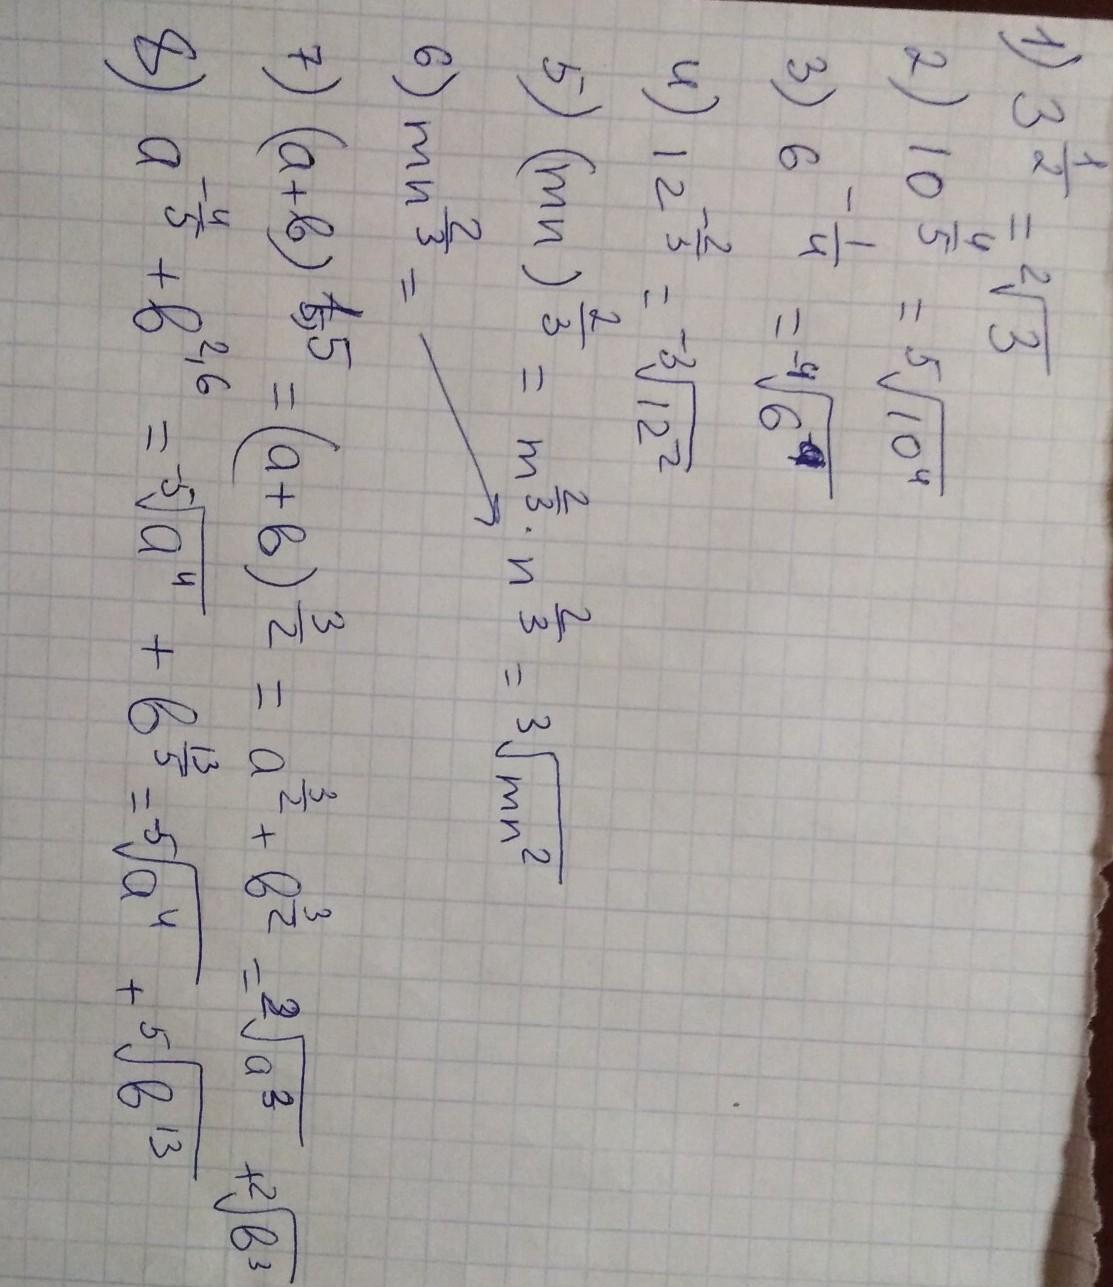 1) 3^(1/2) = ²√3
2) 10^(4/5) = ⁵√(10⁴)
3) 6^(-1/4) = ⁻⁴√6
4) 12^(-2/3) = ⁻³√(12²)
5) (mn)^(2/3) = m^(2/3) · n^(2/3) = ³√(mn²)
6) mn^(2/3) =
7) (a+b)^(1,5) = (a+b)^(3/2) = a^(3/2) + b^(3/2) = ²√(a³) + ²√(b³)
8) a^(-4/5) + b^(2,6) = ⁻⁵√(a⁴) + b^(13/5) = ⁻⁵√(a⁴) + ⁵√(b¹³)